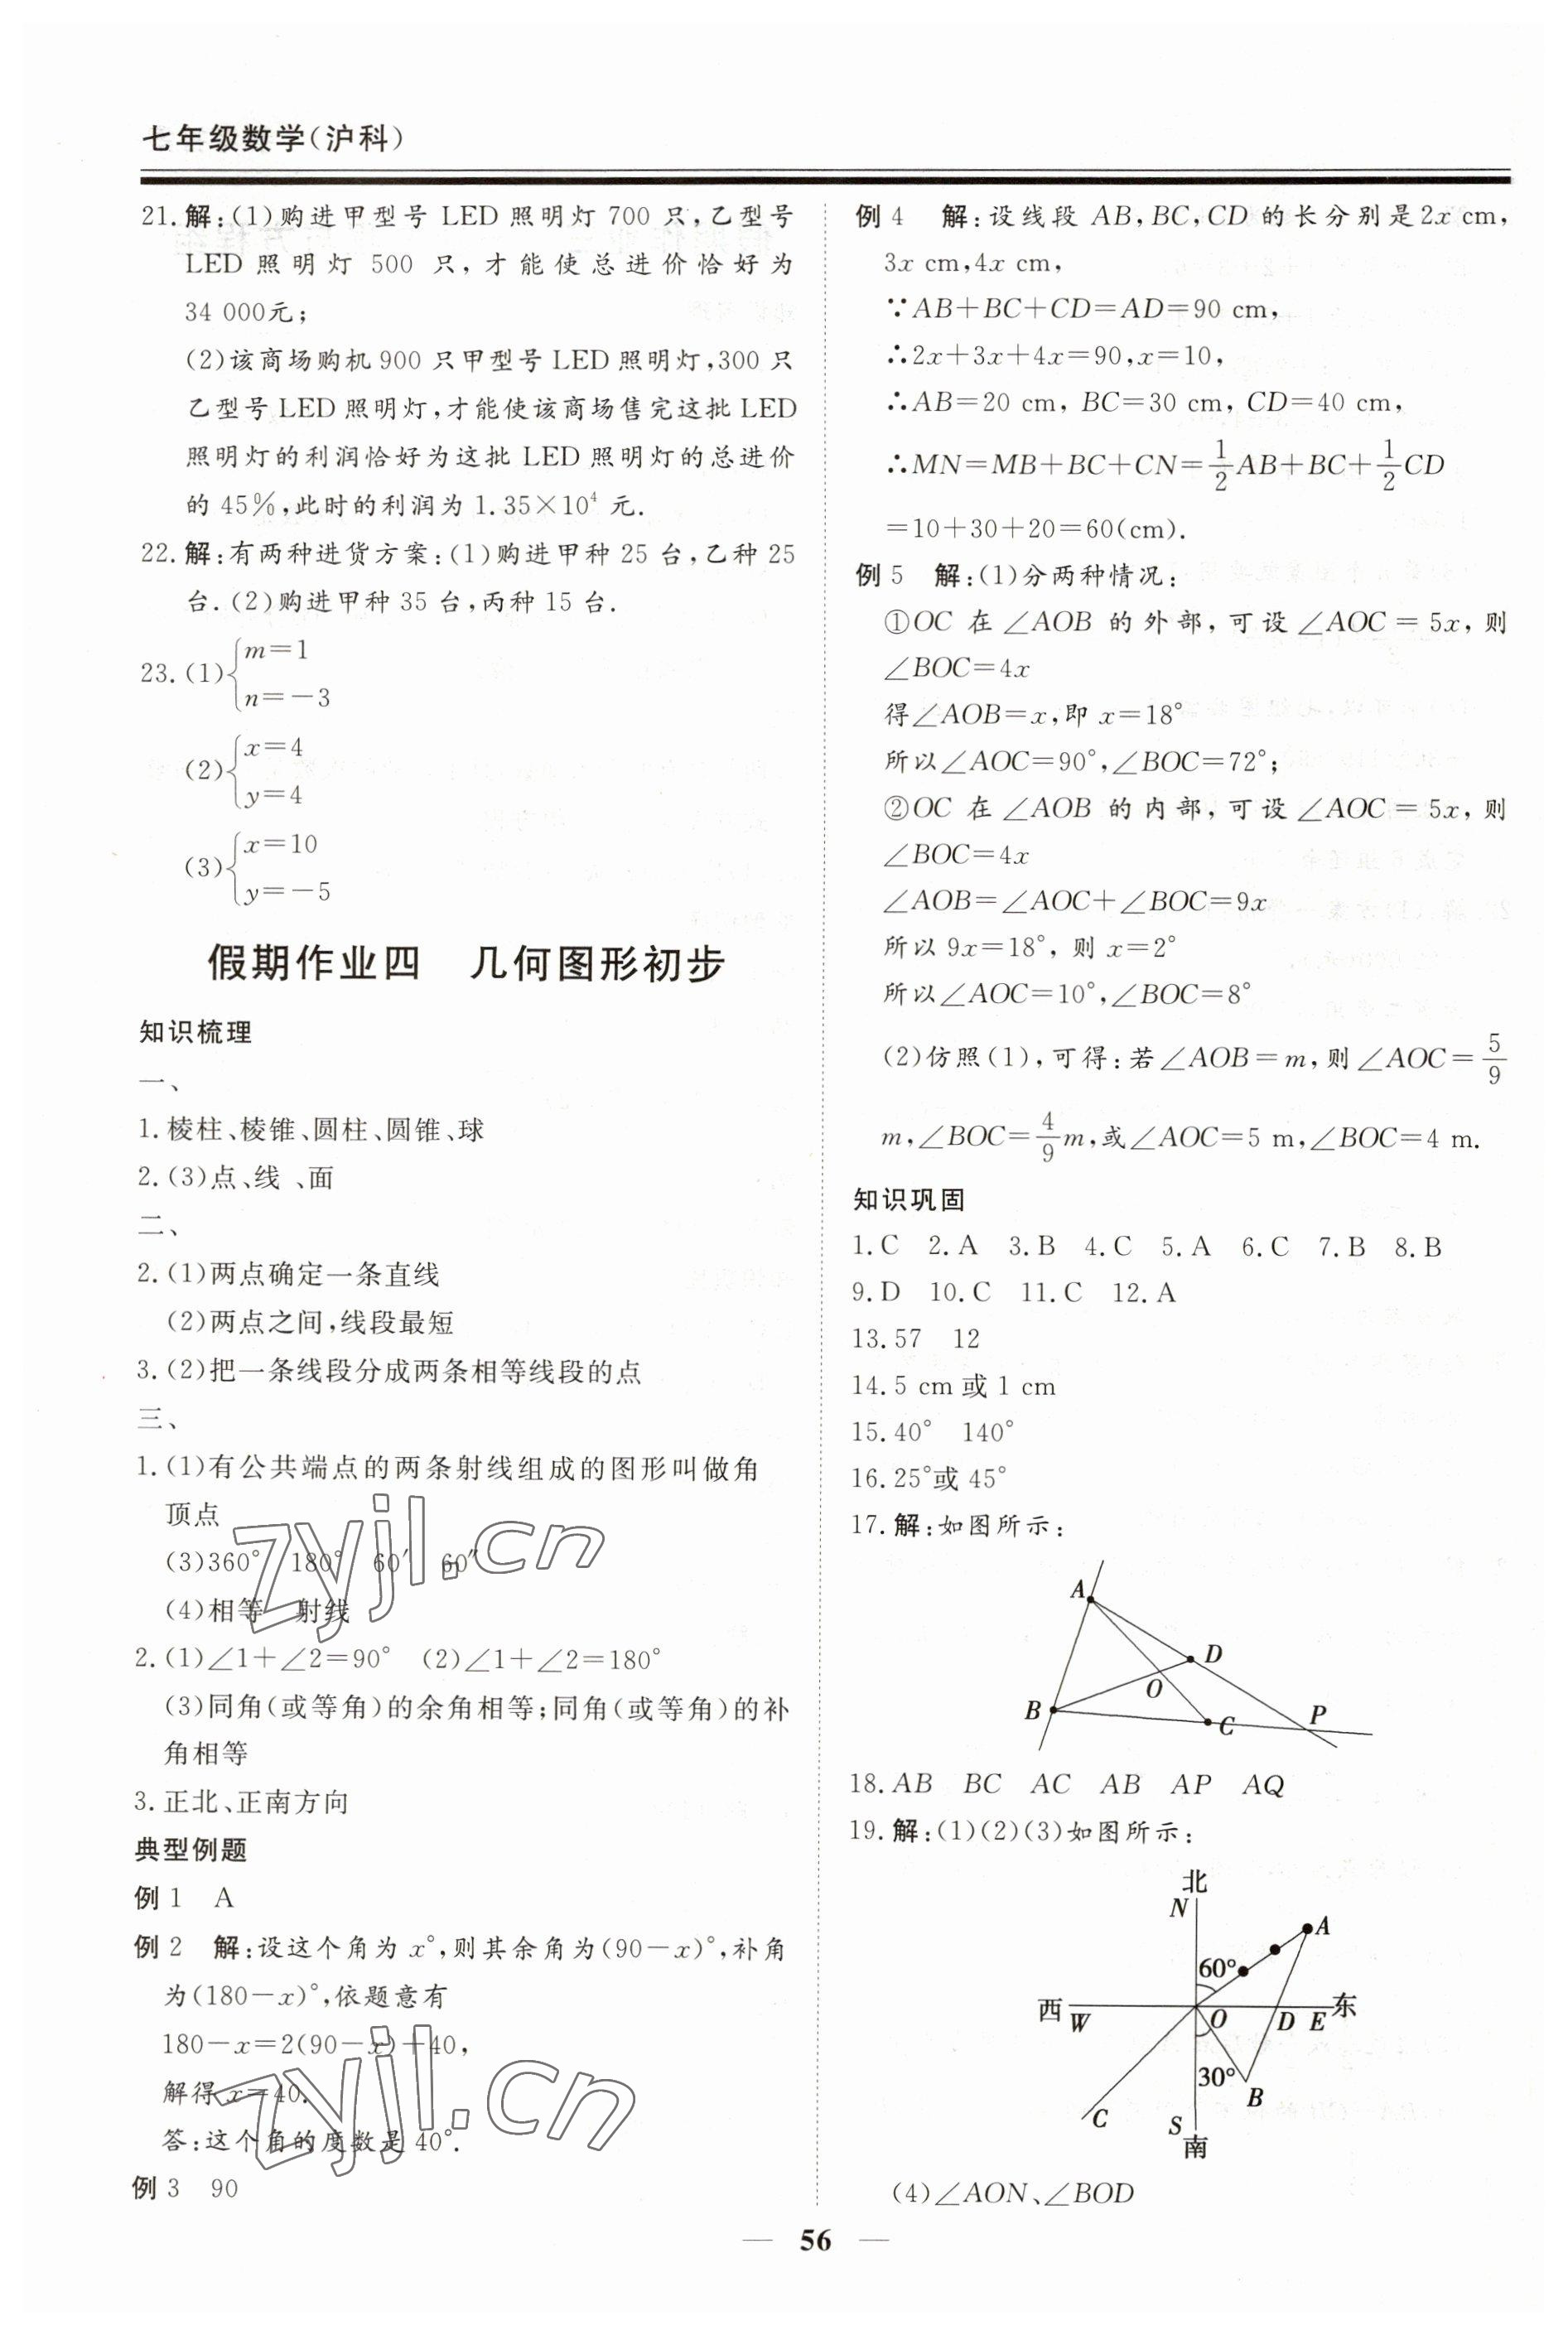 七年级数学(沪科)
21.解:(1)购进甲型号 LED 照明灯 700 只,乙型号
LED 照明灯 500 只,才能使总进价恰好为
34 000元;
(2)该商场购机900 只甲型号LED照明灯,300 只
乙型号LED照明灯,才能使该商场售完这批LED
照明灯的利润恰好为这批 LED 照明灯的总进价
的 45%,此时的利润为 1.35×10⁴ 元.
22.解:有两种进货方案:(1)购进甲种 25 台,乙种 25
台.(2)购进甲种 35 台,丙种 15 台.
23.(1){m=1
n=-3
(2){x=4
y=4
(3){x=10
y=-5
假期作业四 几何图形初步
知识梳理
一、
1.棱柱、棱锥、圆柱、圆锥、球
2.(3)点、线 、面
二、
2.(1)两点确定一条直线
(2)两点之间,线段最短
3.(2)把一条线段分成两条相等线段的点
三、
1.(1)有公共端点的两条射线组成的图形叫做角
顶点
(3)360° 180° 60′ 60″
(4)相等 射线
2.(1)∠1+∠2=90° (2)∠1+∠2=180°
(3)同角(或等角)的余角相等;同角(或等角)的补
角相等
3.正北、正南方向
典型例题
例 1 A
例 2 解:设这个角为 x°,则其余角为(90-x)°,补角
为(180-x)°,依题意有
180-x=2(90-x)+40,
解得 x=40.
答:这个角的度数是 40°.
例 3 90
例 4 解:设线段 AB,BC,CD 的长分别是2x cm,
3x cm,4x cm,
∵AB+BC+CD=AD=90 cm,
∴2x+3x+4x=90,x=10,
∴AB=20 cm, BC=30 cm, CD=40 cm,
∴MN=MB+BC+CN=1/2AB+BC+1/2CD
=10+30+20=60(cm).
例 5 解:(1)分两种情况:
①OC 在∠AOB 的外部,可设∠AOC=5x,则
∠BOC=4x
得∠AOB=x,即 x=18°
所以∠AOC=90°,∠BOC=72°;
②OC 在∠AOB 的内部,可设∠AOC=5x,则
∠BOC=4x
∠AOB=∠AOC+∠BOC=9x
所以 9x=18°, 则 x=2°
所以∠AOC=10°,∠BOC=8°
(2)仿照(1),可得:若∠AOB=m,则∠AOC=5/9
m,∠BOC=4/9m,或∠AOC=5 m,∠BOC=4 m.
知识巩固
1.C 2.A 3.B 4.C 5.A 6.C 7.B 8.B
9.D 10.C 11.C 12.A
13.57 12
14.5 cm或1 cm
15.40° 140°
16.25°或 45°
17.解:如图所示:
A
D
O
B
C
P
18.AB BC AC AB AP AQ
19.解:(1)(2)(3)如图所示:
北
N
A
60°
西 W O D E 东
30°
B
C
S
南
(4)∠AON、∠BOD
56
zyjl.cn
zyjl.cn